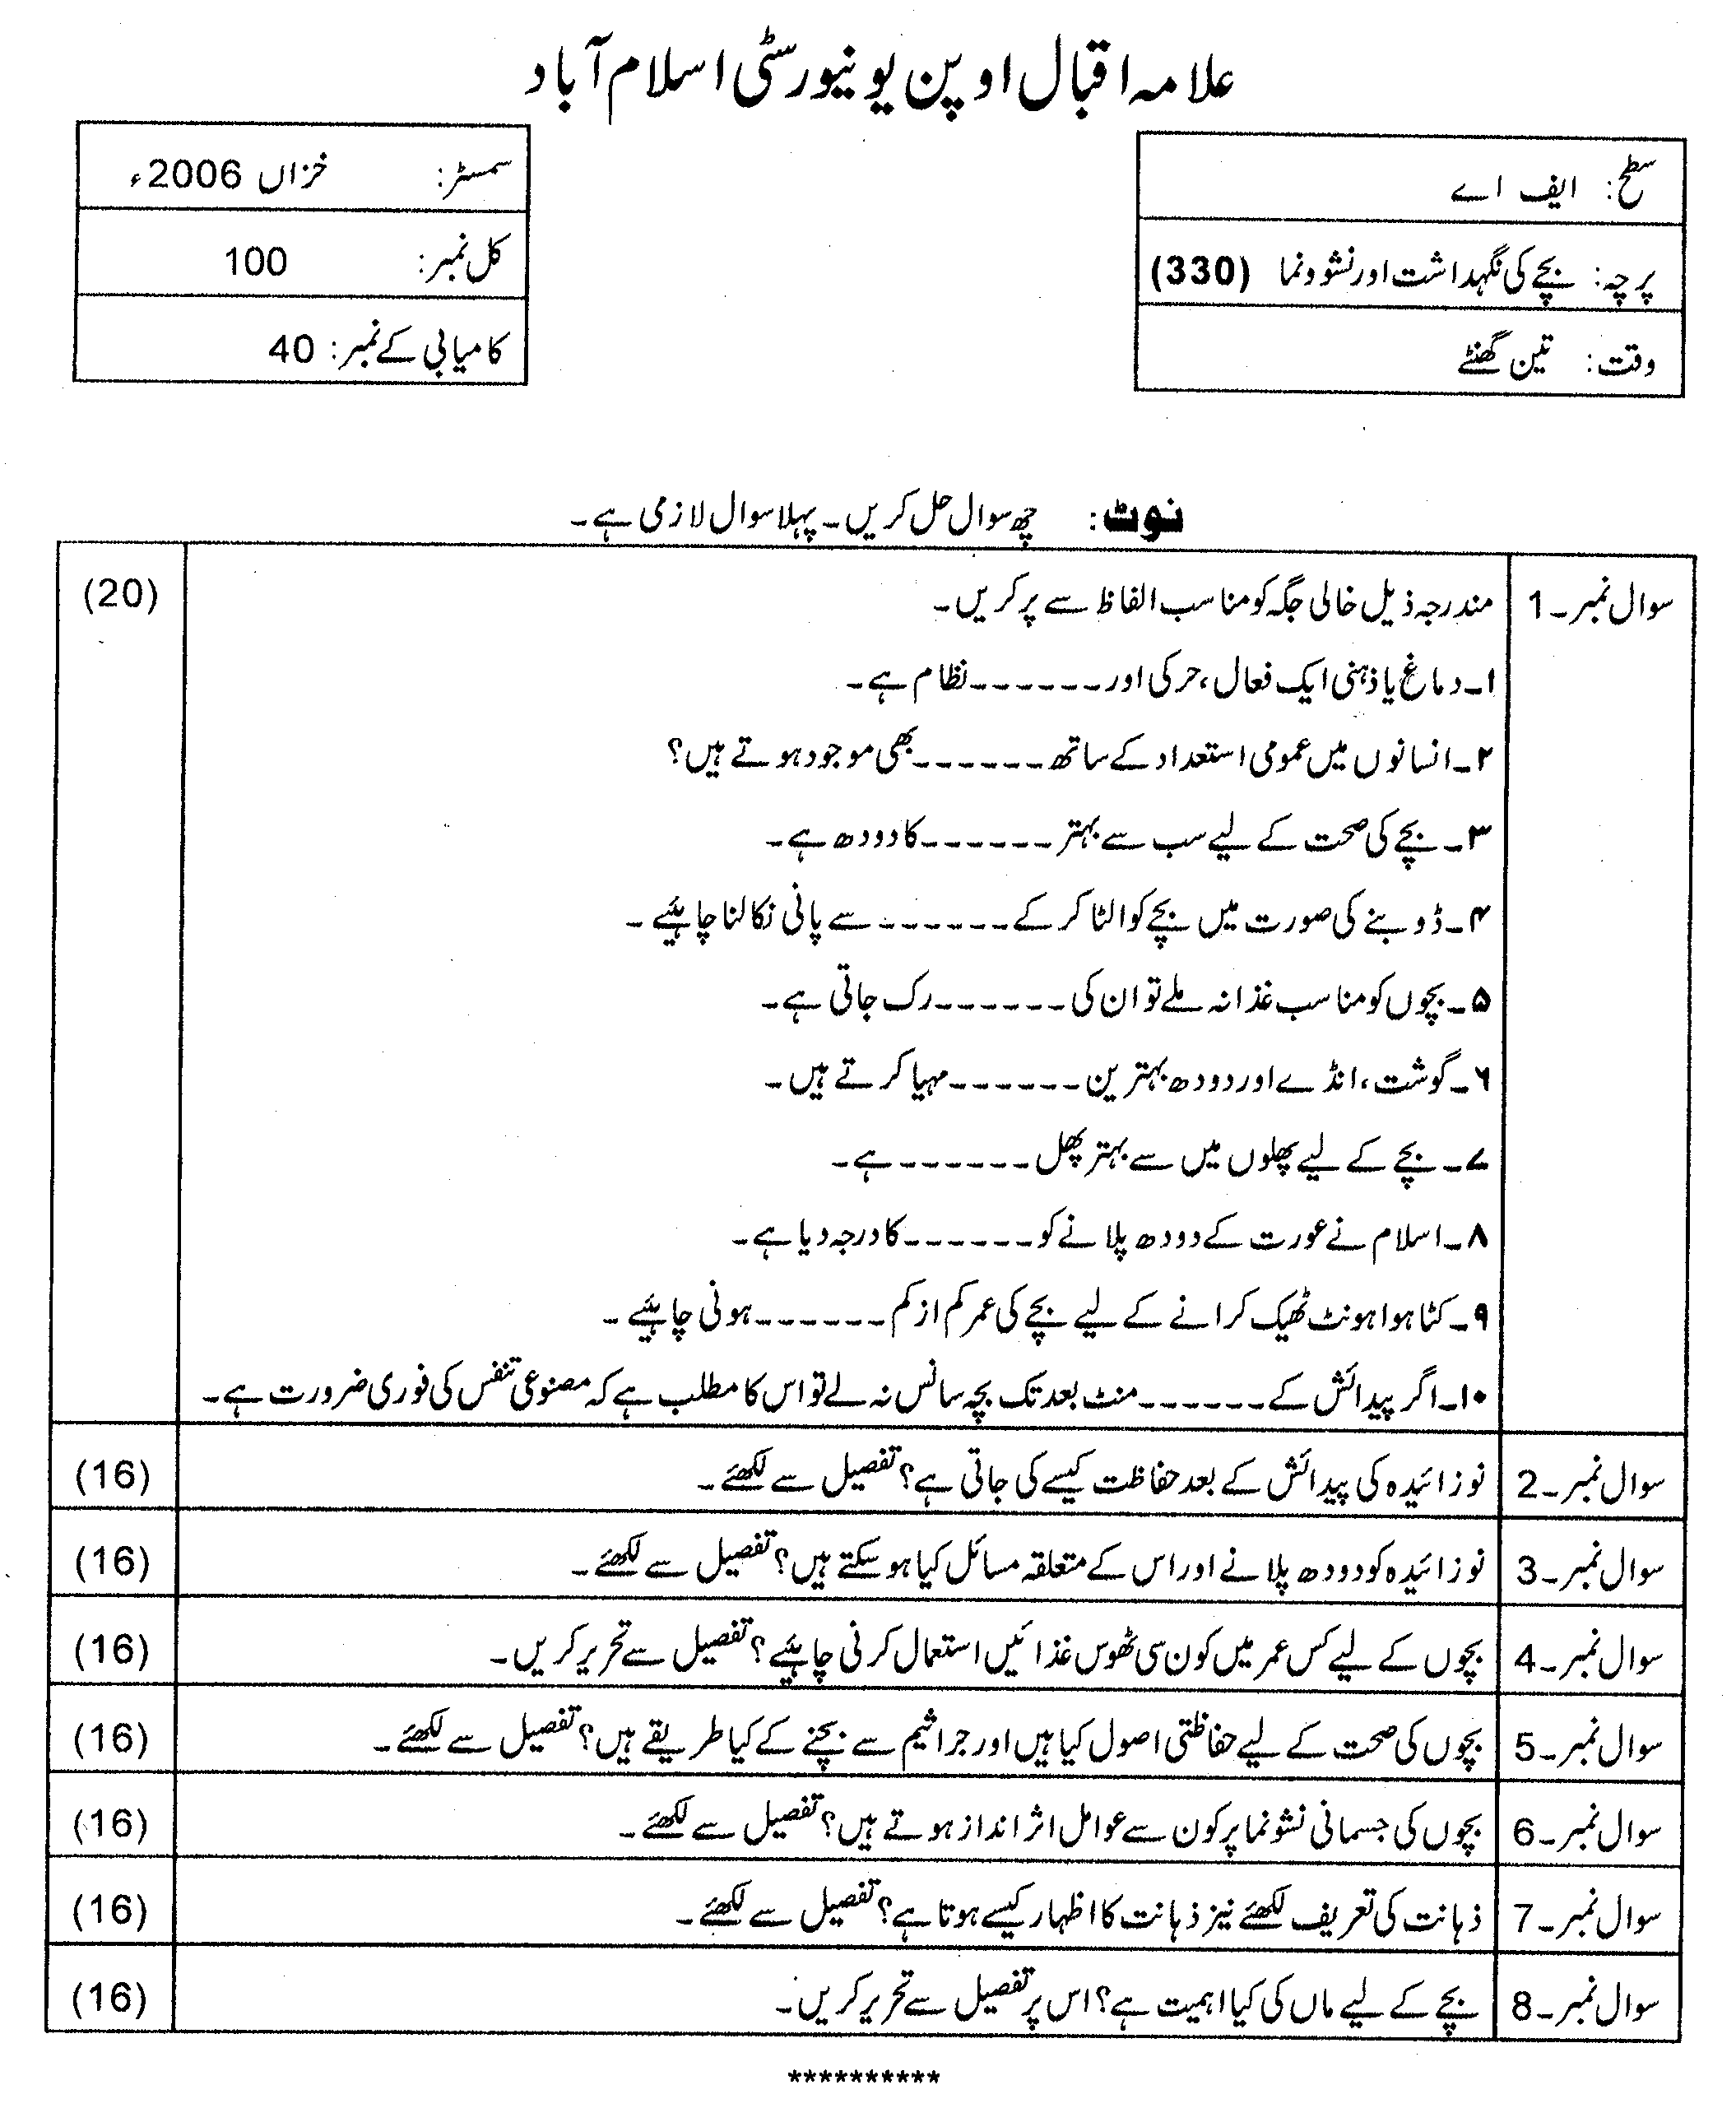 علامہ اقبال اوپن یونیورسٹی اسلام آباد
سطح: ایف اے
پرچہ: بچے کی نگہداشت اور نشوونما (330)
وقت: تین گھنٹے
سمسٹر: خزاں 2006ء
کل نمبر: 100
کامیابی کے نمبر: 40
نوٹ: چھ سوال حل کریں۔ پہلا سوال لازمی ہے۔
سوال نمبر۔1 مندرجہ ذیل خالی جگہ کو مناسب الفاظ سے پر کریں۔ (20)
۱۔ دماغ یا ذہنی ایک فعال، حرکی اور ------ نظام ہے۔
۲۔ انسانوں میں عمومی استعداد کے ساتھ ------ بھی موجود ہوتے ہیں؟
۳۔ بچے کی صحت کے لیے سب سے بہتر ------ کا دودھ ہے۔
۴۔ ڈوبنے کی صورت میں بچے کو الٹا کر کے ------ سے پانی نکالنا چاہئیے۔
۵۔ بچوں کو مناسب غذا نہ ملے تو ان کی ------ رک جاتی ہے۔
۶۔ گوشت، انڈے اور دودھ بہترین ------ مہیا کرتے ہیں۔
۷۔ بچے کے لیے پھلوں میں سے بہتر پھل ------ ہے۔
۸۔ اسلام نے عورت کے دودھ پلانے کو ------ کا درجہ دیا ہے۔
۹۔ کٹا ہوا ہونٹ ٹھیک کرانے کے لیے بچے کی عمر کم از کم ------ ہونی چاہئیے۔
۱۰۔ اگر پیدائش کے ------ منٹ بعد تک بچہ سانس نہ لے تو اس کا مطلب ہے کہ مصنوعی تنفس کی فوری ضرورت ہے۔
سوال نمبر۔2 نوزائیدہ کی پیدائش کے بعد حفاظت کیسے کی جاتی ہے؟ تفصیل سے لکھئے۔ (16)
سوال نمبر۔3 نوزائیدہ کو دودھ پلانے اور اس کے متعلقہ مسائل کیا ہو سکتے ہیں؟ تفصیل سے لکھئے۔ (16)
سوال نمبر۔4 بچوں کے لیے کس عمر میں کون سی ٹھوس غذائیں استعمال کرنی چاہئیے؟ تفصیل سے تحریر کریں۔ (16)
سوال نمبر۔5 بچوں کی صحت کے لیے حفاظتی اصول کیا ہیں اور جراثیم سے بچنے کے کیا طریقے ہیں؟ تفصیل سے لکھئے۔ (16)
سوال نمبر۔6 بچوں کی جسمانی نشونما پر کون سے عوامل اثر انداز ہوتے ہیں؟ تفصیل سے لکھئے۔ (16)
سوال نمبر۔7 ذہانت کی تعریف لکھئے نیز ذہانت کا اظہار کیسے ہوتا ہے؟ تفصیل سے لکھئے۔ (16)
سوال نمبر۔8 بچے کے لیے ماں کی کیا اہمیت ہے؟ اس پر تفصیل سے تحریر کریں۔ (16)
**********